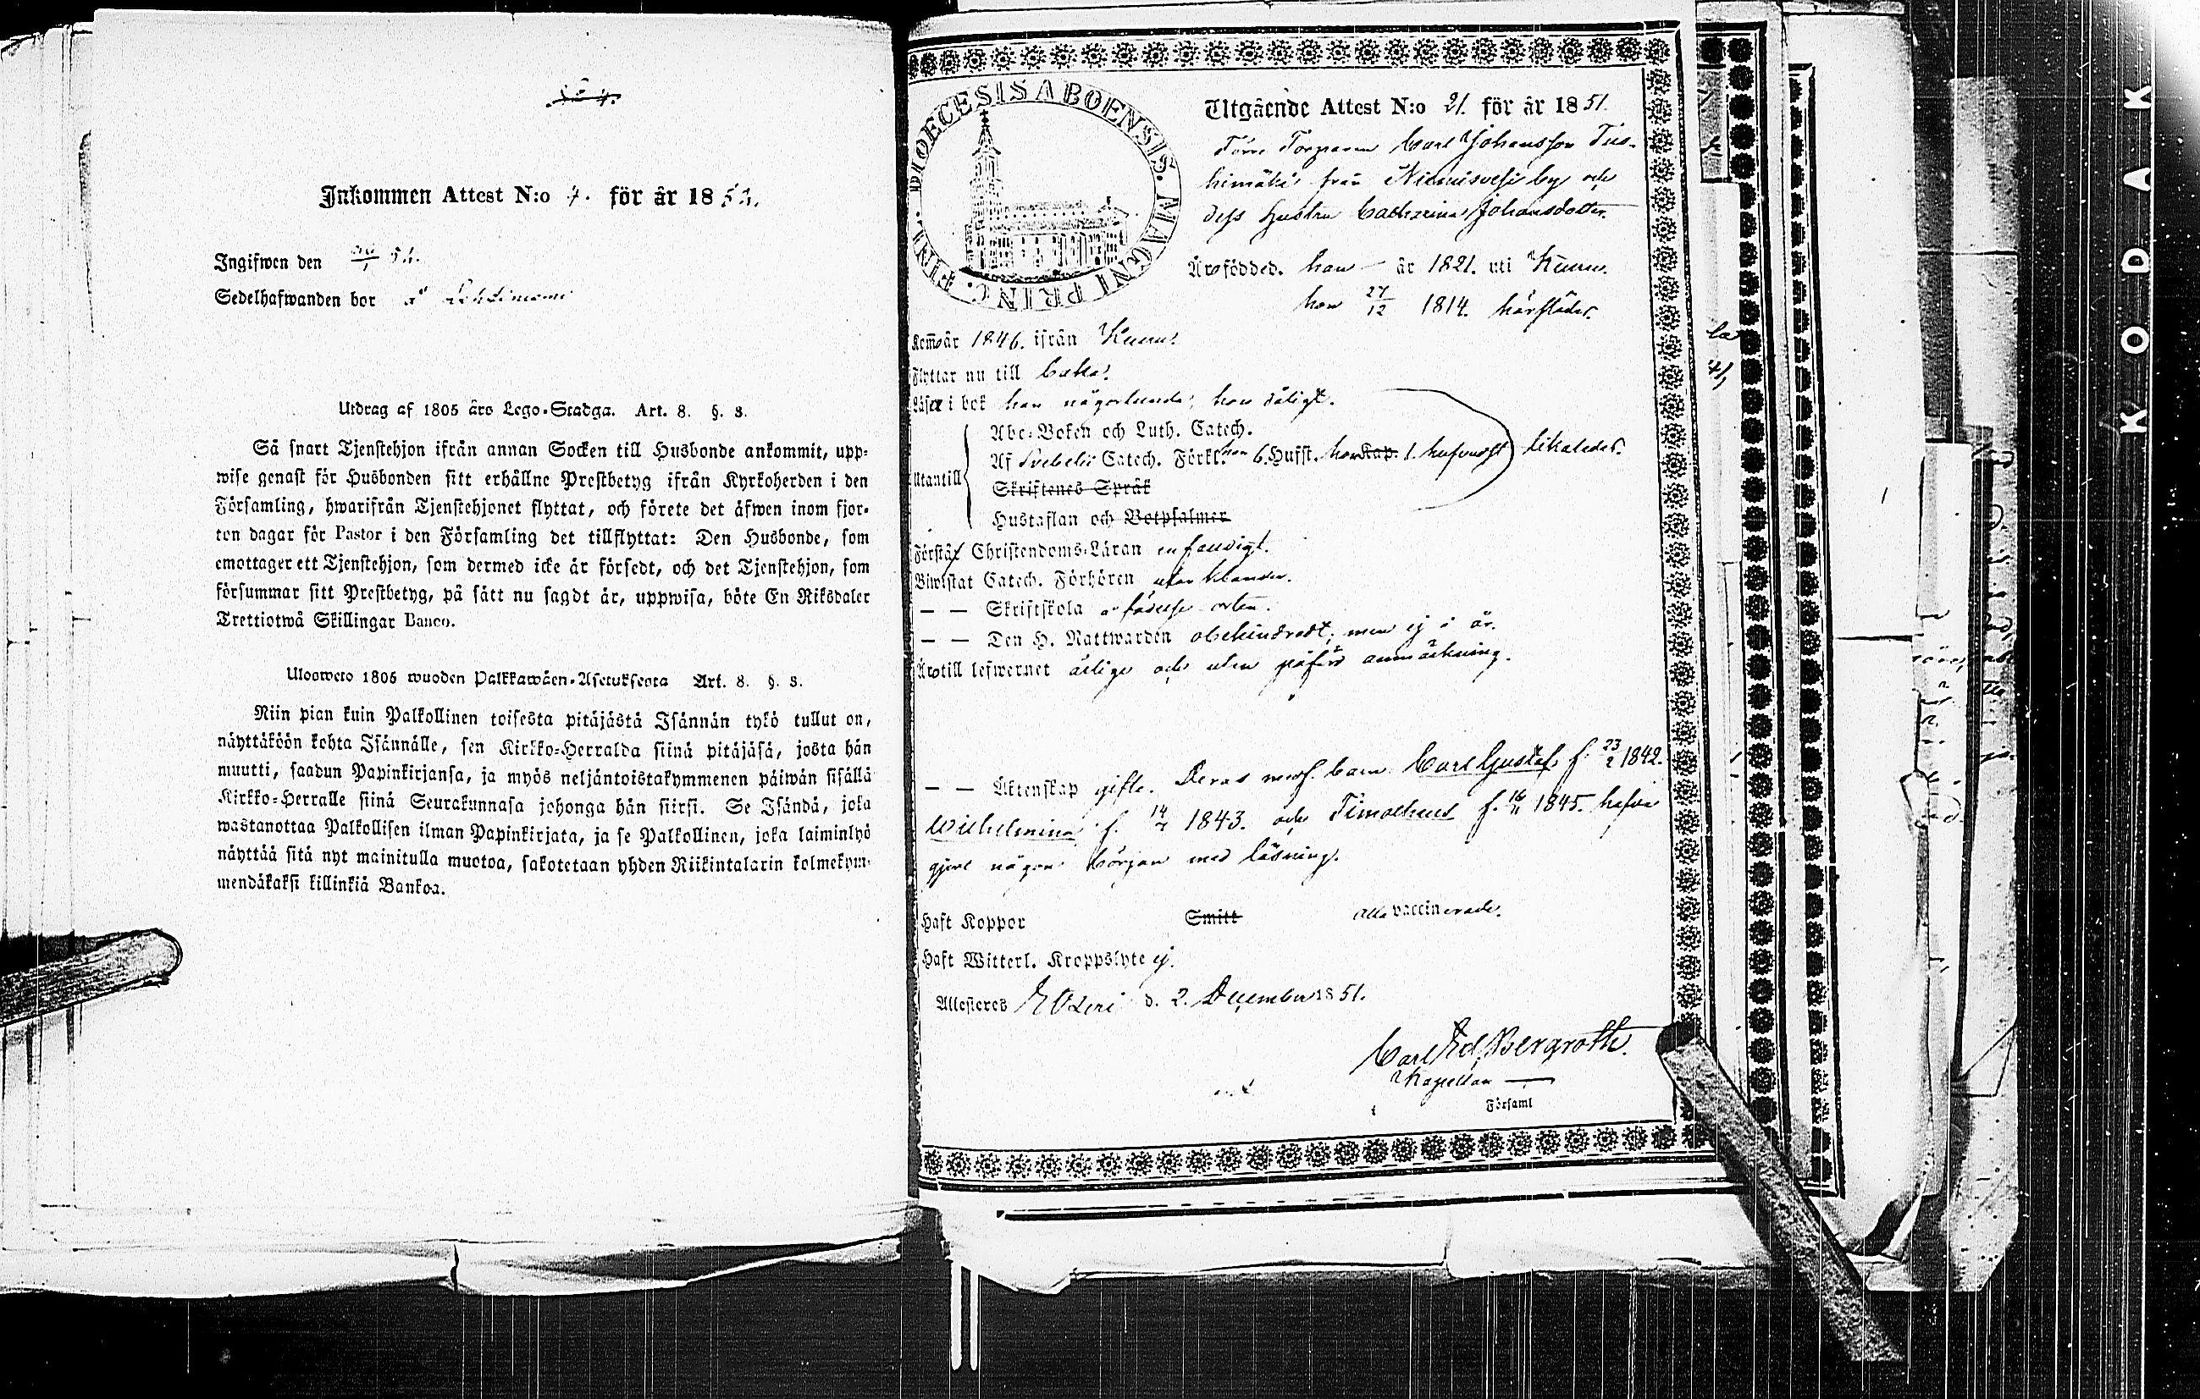 Inkommen Attest N:o 4. för år 1852.
Ingifwen den 52.
Sedelhafwanden bor
Utdrag af 1805 års Lego-Stadga. Art. 8. §. 8.
Så snart Tjenstehjon ifrån annan Socken till Husbonde ankommit, upp-
wise genast för Husbonden sitt erhållne Prestbetyg ifrån Kyrkoherden i den
Församling, hwarifrån Tjenstehjonet flyttat, och förete det äfwen inom fjor-
ton dagar för Pastor i den Församling det tillflyttat: Den Husbonde, som
emottager ett Tjenstehjon, som dermed icke är försedt, och det Tjenstehjon, som
försummar sitt Prestbetyg, på sätt nu sagdt är, uppwisa, böte En Riksdaler
Trettiotwå Skillingar Banco.
Ulosweto 1805 wuoden Palkkawäen-Asetuksesta Art. 8. §. 8.
Niin pian kuin Palkollinen toisesta pitäjästä Isännän tykö tullut on,
näyttäköön kohta Isännälle, sen Kirkko-Herralda siinä pitäjäsä, josta hän
muutti, saadun Papinkirjansa, ja myös neljäntoistakymmenen päiwän sisällä
Kirkko-Herralle siinä Seurakunnasa johonga hän siirsi. Se Isändä, joka
wastanottaa Palkollisen ilman Papinkirjata, ja se Palkollinen, joka laiminlyö
näyttää sitä nyt mainitulla muotoa, sakotetaan yhden Riikintalarin kolmekym-
mendäkaksi killinkiä Bankoa.
DIOECESIS ABOENSIS. MAGNI PRINC. FINL.
Utgående Attest N:o 21. för år 1851.
Förre Torparen Carl Johansson Tus-
kimäki från Niemisvesi by och
dess hustru Catharina Johansdotter.
Äro födde d. han — år 1821. uti Kuru.
hon 27/12 1814. härstädes.
Kom år 1846. ifrån Kuru.
Flyttar nu till
Läser i bok han någorlunda, hon dåligt.
Utantill
Abc-Boken och Luth. Catech.
Af Svebelii Catech. Förkl. han 6. Hufst. hon Kap. 1. hufvudst likaledes.
Skriftenes Språk
Hustaflan och Botpsalmer
Förstå Christendoms-Läran enfaldigt.
Biwistat Catech. Förhören utan klander.
— — Skriftskola å födelse orten.
— — Den H. Nattwarden obehindradt, men ej i år.
Äro till lefwernet ärlige och utan påförd anmärkning.
— — Äktenskap gifte. Deras barn Carl Gustaf f. 23/2 1842.
Wilhelmina f. 1843. och Timotheus f. 1845. hafva
gjort någon början med läsning.
Haft Koppor Smitt alla vaccinerade.
Haft Witterl. Kroppslyte ej.
Attesteras Etseri d. 2. December 1851.
Carl Ed. Bergroth.
Kapellan —
Församl
KODAK